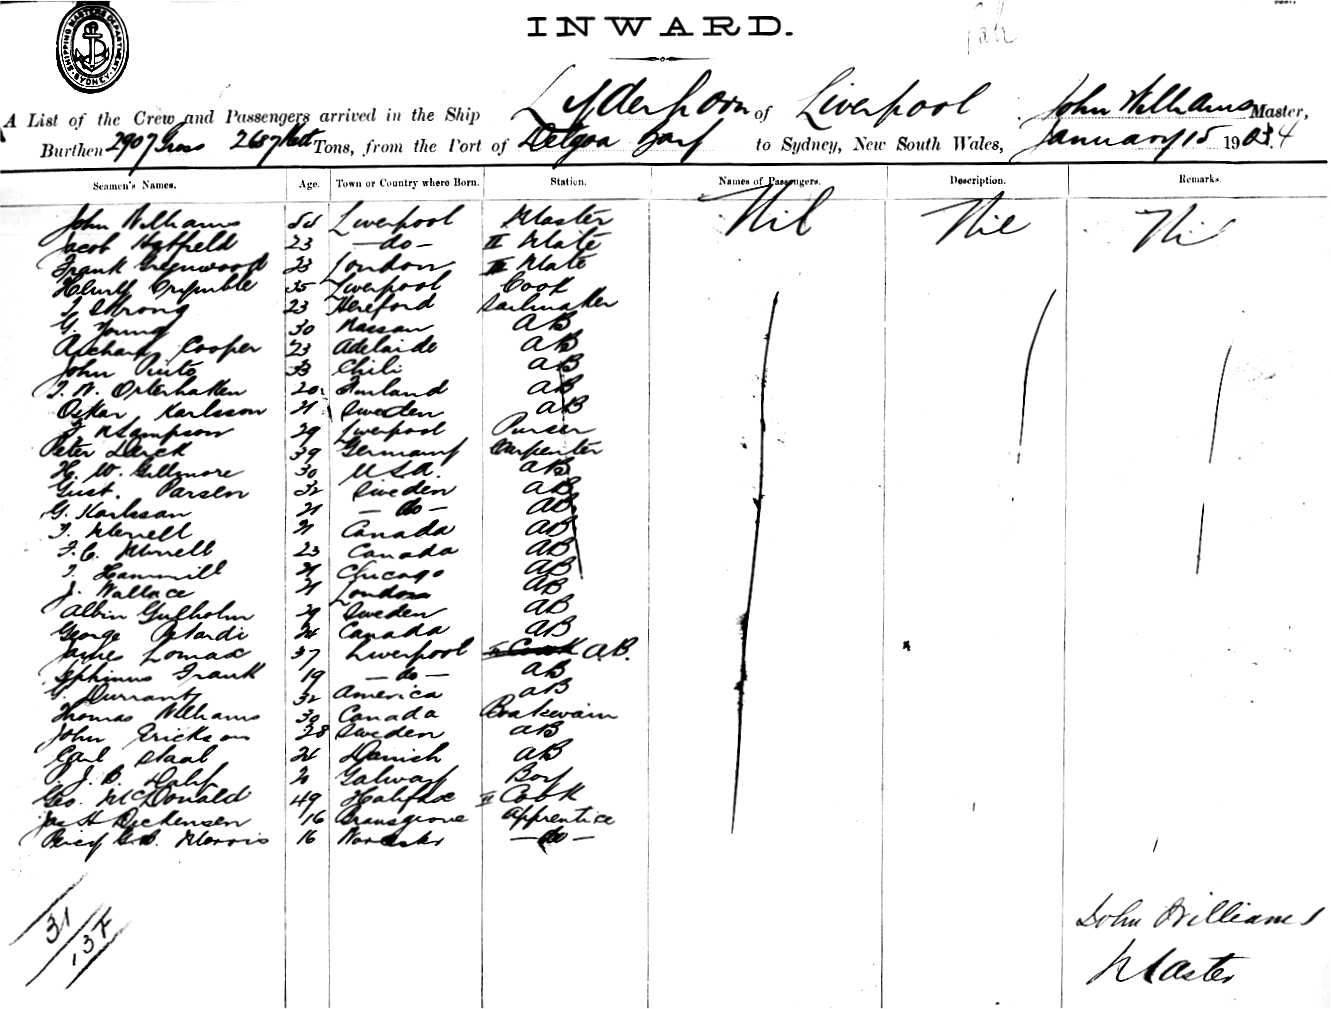 SHIPPING MASTERS DEPARTMENT SYDNEY
INWARD.
A List of the Crew and Passengers arrived in the Ship Lyderhorn of Liverpool John Williams Master,
Burthen 2907 Gross 2687 Nett Tons, from the Port of Delgoa Bay to Sydney, New South Wales, January 15 1904
Seamen's Names. Age. Town or Country where Born. Station. Names of Passengers. Description. Remarks.
John Williams 54 Liverpool Master Nil Nil Nil
Jacob Hatfield 23 - do - II Mate
Frank Greenwood 23 London III Mate
35 Liverpool Cook
J Strong 23 Hereford Sailmaker
G. Young 30 Nassau AB
Cooper 23 Adelaide AB
John Pinto 33 Chili AB
20 Finland AB
Oskar Karlsson 21 Sweden AB
29 Liverpool Purser
Peter Derck 39 Germany Carpenter
H. W. Gillmore 30 U S A. AB
Gust. Parsen 32 Sweden AB
G. Karlsson 21 - do - AB
21 Canada AB
23 Canada AB
21 Chicago AB
J. Wallace 21 London AB
Albin Gulholm 29 Sweden AB
George 24 Canada AB
James Lomax 37 Liverpool II Cook A.B.
Frank 19 - do - AB
G. Durrant 32 America AB
Thomas Williams 30 Canada Boatswain
John Erickson 28 Sweden AB
Carl Staal 24 Danish AB
P. J. B. Daly 20 Galway Boy
Geo. McDonald 49 Halifax II Cook
Jas H Dickensen 16 Bransgrove Apprentice
Percy G.B. Morris 16 Worcester - do -
31
137
John Williams
Master